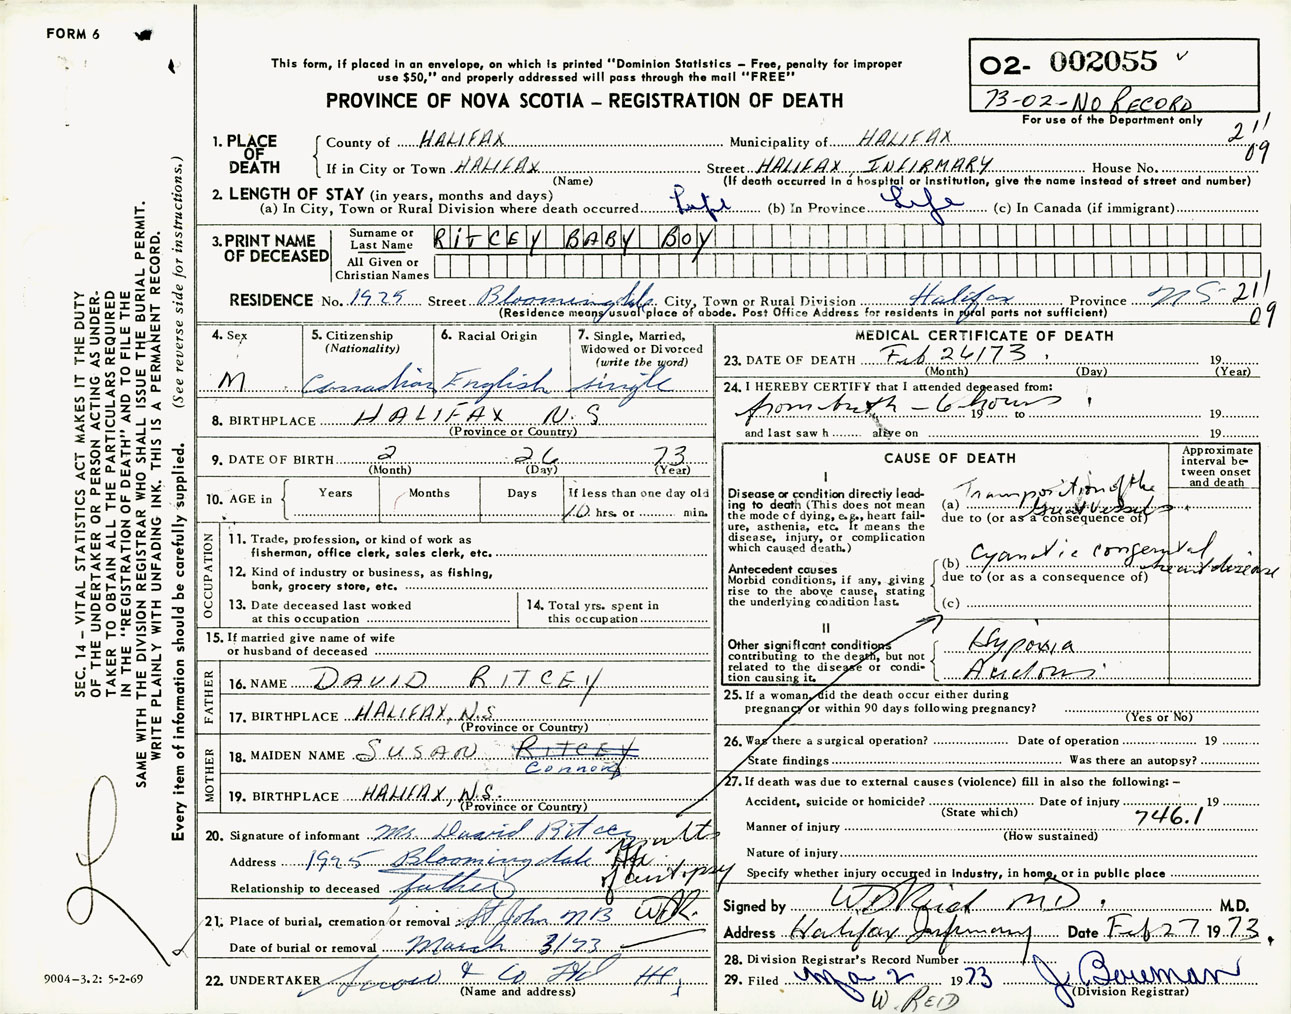 FORM 6
This form, if placed in an envelope, on which is printed "Dominion Statistics – Free, penalty for improper
use $50," and properly addressed will pass through the mail "FREE"
PROVINCE OF NOVA SCOTIA – REGISTRATION OF DEATH
02- 002055
73-02-NO RECORD
For use of the Department only
211
09
1. PLACE OF DEATH
County of HALIFAX Municipality of HALIFAX
If in City or Town HALIFAX Street HALIFAX INFIRMARY House No.
(Name) (If death occurred in a hospital or institution, give the name instead of street and number)
2. LENGTH OF STAY (in years, months and days)
(a) In City, Town or Rural Division where death occurred Life (b) In Province Life (c) In Canada (if immigrant)
3. PRINT NAME OF DECEASED
Surname or Last Name RITCEY BABY BOY
All Given or Christian Names
RESIDENCE No. 1925 Street Bloomingdale City, Town or Rural Division Halifax Province NS
(Residence means usual place of abode. Post Office Address for residents in rural parts not sufficient)
211
09
4. Sex M
5. Citizenship (Nationality) Canadian
6. Racial Origin English
7. Single, Married, Widowed or Divorced (write the word) single
8. BIRTHPLACE HALIFAX N.S
(Province or Country)
9. DATE OF BIRTH 2 26 73
(Month) (Day) (Year)
10. AGE in Years Months Days If less than one day old
10 hrs. or min.
OCCUPATION
11. Trade, profession, or kind of work as
fisherman, office clerk, sales clerk, etc.
12. Kind of industry or business, as fishing,
bank, grocery store, etc.
13. Date deceased last worked
at this occupation
14. Total yrs. spent in
this occupation
15. If married give name of wife
or husband of deceased
FATHER
16. NAME DAVID RITCEY
17. BIRTHPLACE HALIFAX, N.S.
(Province or Country)
MOTHER
18. MAIDEN NAME SUSAN RITCEY
Connors
19. BIRTHPLACE HALIFAX, N.S.
(Province or Country)
20. Signature of informant Mr David Ritcey
Address 1925 Bloomingdale Hfx.
Relationship to deceased father
results
of autopsy
WDR.
21. Place of burial, cremation or removal St John NB
Date of burial or removal March 3/73
22. UNDERTAKER Snow & Co Ltd Hfx
(Name and address)
MEDICAL CERTIFICATE OF DEATH
23. DATE OF DEATH Feb 26/73 19
(Month) (Day) (Year)
24. I HEREBY CERTIFY that I attended deceased from:
from birth – 6 hours 19 to 19
and last saw h alive on 19
CAUSE OF DEATH
Approximate interval between onset and death
I
Disease or condition directly leading to death (This does not mean the mode of dying, e.g., heart failure, asthenia, etc. It means the disease, injury, or complication which caused death.)
(a) Transposition of the
Great Vessels
due to (or as a consequence of)
Antecedent causes
Morbid conditions, if any, giving rise to the above cause, stating the underlying condition last.
(b) Cyanotic congenital
heart disease
due to (or as a consequence of)
(c)
II
Other significant conditions contributing to the death, but not related to the disease or condition causing it.
Hypoxia
Acidosis
25. If a woman, did the death occur either during
pregnancy or within 90 days following pregnancy?
(Yes or No)
26. Was there a surgical operation? Date of operation 19
State findings Was there an autopsy?
27. If death was due to external causes (violence) fill in also the following: –
Accident, suicide or homicide? Date of injury 19
(State which)
746.1
Manner of injury
(How sustained)
Nature of injury
Specify whether injury occurred in Industry, in home, or in public place
Signed by W D Reid MD M.D.
Address Halifax Infirmary Date Feb 27 1973.
28. Division Registrar's Record Number
29. Filed Mar 2 1973 J. Bowman
(Division Registrar)
W. REID
SEC. 14 – VITAL STATISTICS ACT MAKES IT THE DUTY
OF THE UNDERTAKER OR PERSON ACTING AS UNDER-
TAKER TO OBTAIN ALL THE PARTICULARS REQUIRED
IN THE "REGISTRATION OF DEATH" AND TO FILE THE
SAME WITH THE DIVISION REGISTRAR WHO SHALL ISSUE THE BURIAL PERMIT.
WRITE PLAINLY WITH UNFADING INK. THIS IS A PERMANENT RECORD.
Every item of information should be carefully supplied. (See reverse side for instructions.)
9004–3.2: 5-2-69